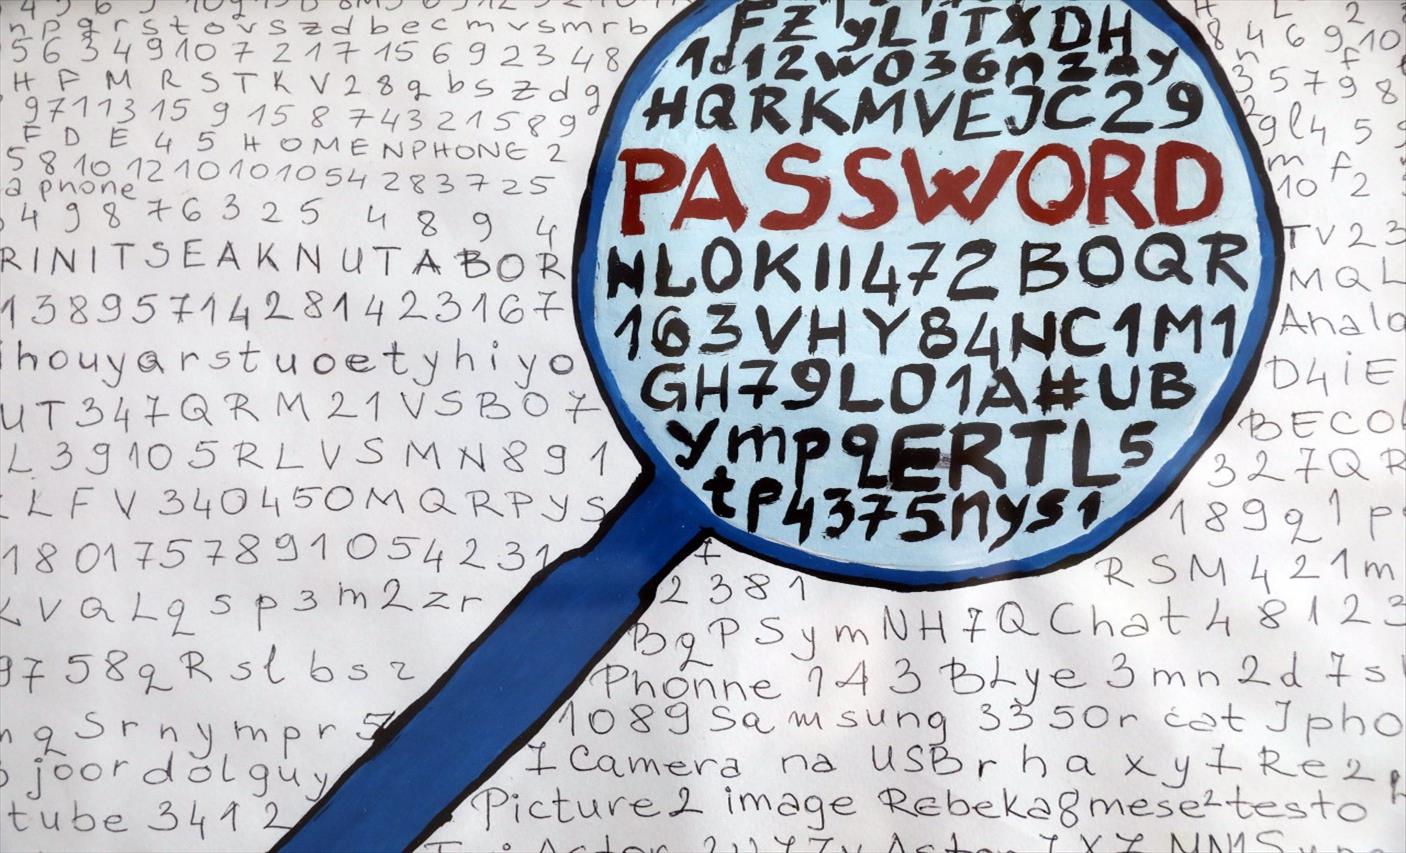 npgrstovszdbecmvsmrb
5634910721715692348
HFMRSTKV28qbszdg
971131591587432158 9
FDE45HOMENPHONE2
5810121010105428 3725
a phone
498 76325 4894
RINITSEAKNUTABOR
138957142814 23167
ihouyqrstuoetyhiyo
UT347QRM21VSBO7
L39105RLVSMN891
LFV340450MQRPYS
180175789105423 1
VQLqsp3m2zr
9758qRslbsz
qSrnympr5
joordolguy
tube 3412
FZ'yLITXDH
1d12w036nzdy
HQRKMVEJC29
PASSWORD
NLOKII472BOQR
163VHY84NC1M1
GH79LO1A#UB
ympqERTL5
tp4375nys1
846910
3579 8
9l4 5
m f2
10
TV23
MQL
Analo
D4iE
BECO
327QR
189q1p
RSM421m
7
2381
BqPSymNH7QChat48123
Phonne 143BLye3mn2d7s
1089Samsung 3350r cat Jpho
7Camera na USBrhaxy7Re2
Picture2 image Rebeka8mese2testo